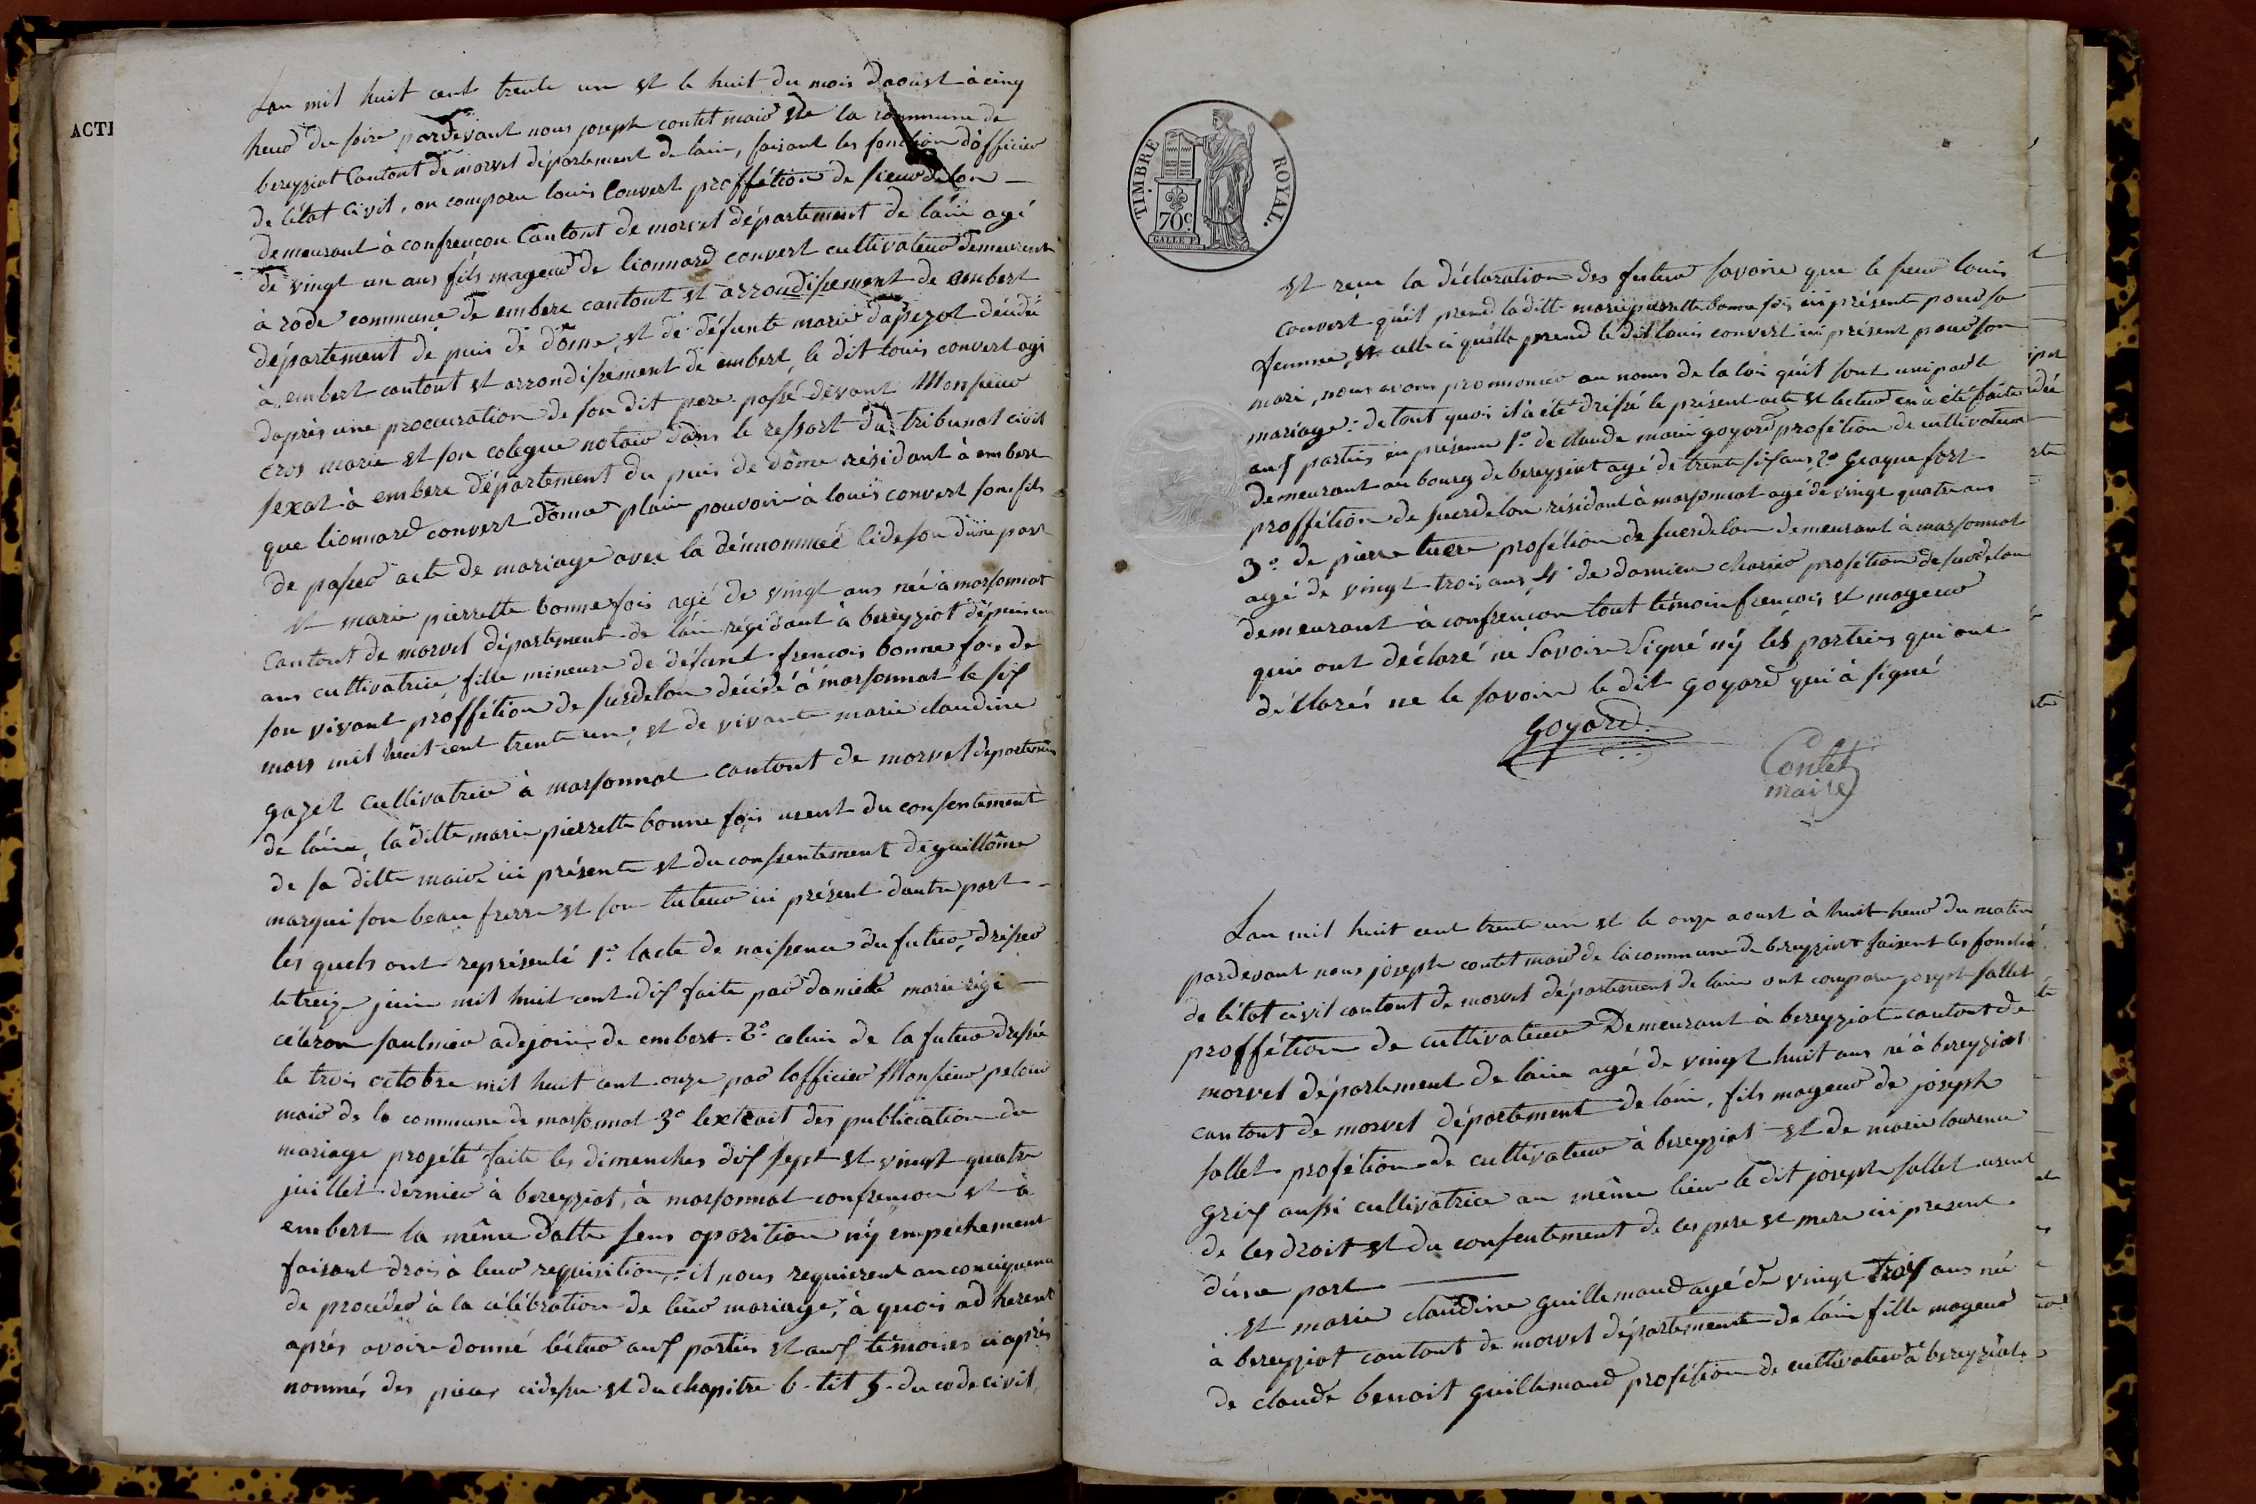 ACTI
Lan mil huit cent trente un et le huit du mois daoust à cinq
heur du soire pardevant nous joseph contet mair de la commune de
bereyziat Cantont de morvel département de lain, faisant les fonction dofficier
de létat civil, on comparu louis Convert proffétion de sieur delon
demeurant à confrençon Cantont de morvel département de láin agé
de vingt un ans fils mageur de lionnard convert cultivateur demeurent
à rode commune de embere cantont et arrondisement de embert
département de puis de dôme, et de défunte marie dapezot décédé
à embert cantont et arrondisement de embert, le dit louis convert agi
daprès une procuration de son dit pere passé devant Monsieur
cros marie et son colegue notair dans le ressort du tribunal civil
sexat à embere département du puis de dôme résidant à embere
que lionnard convert donne plain pouvoir à louis convert son fils
de passer acte de mariage avec la dénnommée cidesou dune part
et marie pierrette bonnefois agé de vingt ans née à marsonnat
Cantont de morvel département de láin régidant à bereyziot depuis un
ans cultivatrice fille mineure de défunt frençois bonne fois de
son vivant proffétion de siesdelon décédé à marsonnat le six
mars mil huit cent trente un, et de vivante marie claudine
gazet cultivatrice à marsonnat cantont de morvel départemen
de láin, la ditte marie pierrette bonne fois usent du consentement
de sa ditte maire ici présente et du consentement de guillôme
marqui son beau frere et son tuteur ici présent dautre part
les quels ont représenté 1.º lacte de naissence du futur, dresser
le treize juin mil huit cent dix faite par danielle marie régi
céléron saulnier adejoin de embert. 2.º celui de la futur dressée
le trois octobre mil huit cent onze par lofficier Monsieur peloux
mair de la commune de marsonnat 3.º lextrait des publication du
mariage projété faite les dimenches dix sept et vingt quatre
juillet dernier à bereyziat, à marsonnat confrençon et à
embert la même datte sens oposition nÿ empéchement
faisant droi à leur requisition, il nous requierent an conciquence
de procéder à la célébration de leur mariage, à quoi ad herent
après avoire donné léctur aux parties et aux témoins ci après
nommés des pieces cidessu et du chapitre 6 tit 5 du code civil,
TIMBRE ROYAL.
70c
GALLE F.
et reçu la déclaration des futur savoire que le sieur louis
convert quil prend la ditte marie pierrette bonne fois ici présent pour sa
femme, et celle ci quelle prend le dit louis convert ici présent pour son
mari, nous avons prononcer au nom de la loi quil sont uni par le
mariage: de tout quoi il à été dréssé le présent acte et lectur en à été faite
aux parties en présence 1.º de claude marie goyard profétion de cultivateur
demeurant au bourg de bereyziat agé de trente six ans 2.º graque fort
proffétion de siesdelon résidant à marsonnat agé de vingt quatre ans
3.º de pierre tuere profétion de siesdelon demeurant à marsonnat
agé de vingt trois ans, 4.º de damien charrier profétion de siesdelon
demeurant à confrençon tout témoin françois et mageur
qui ont déclaré né Savoir Signé nÿ les parties qui ont
déclarés ne le savoir le dit goyard qui à signé
goyard
Contet
maire
Lan mil huit cent trente un et le onze aoust à huit heur du matin
pardevant nous joseph contet mair de la commune de bereyziat faisent les fonction
de létat civil cantont de morvel département de lain ont comparu joseph sallet
proffétion de cultivateur Demeurant à bereyziat cantont de
morvel département de láin agé de vingt huit ans né à bereyziat
cantont de morvel département de láin, fils mageur de joseph
sallet profétion de cultivateur à bereyziat et de marie laurence
grix aussi cultivatrice au même lieu le dit joseph sallet usent
de ces droit et du consentement de ces pere et mere ici present
dúne part
et marie claudine guillemaud agé de vingt trois ans né
à bereyziat cantont de morvel département de láin fille mageur
de claude benoit guillemaud profétion de cultivateur à bereyziat